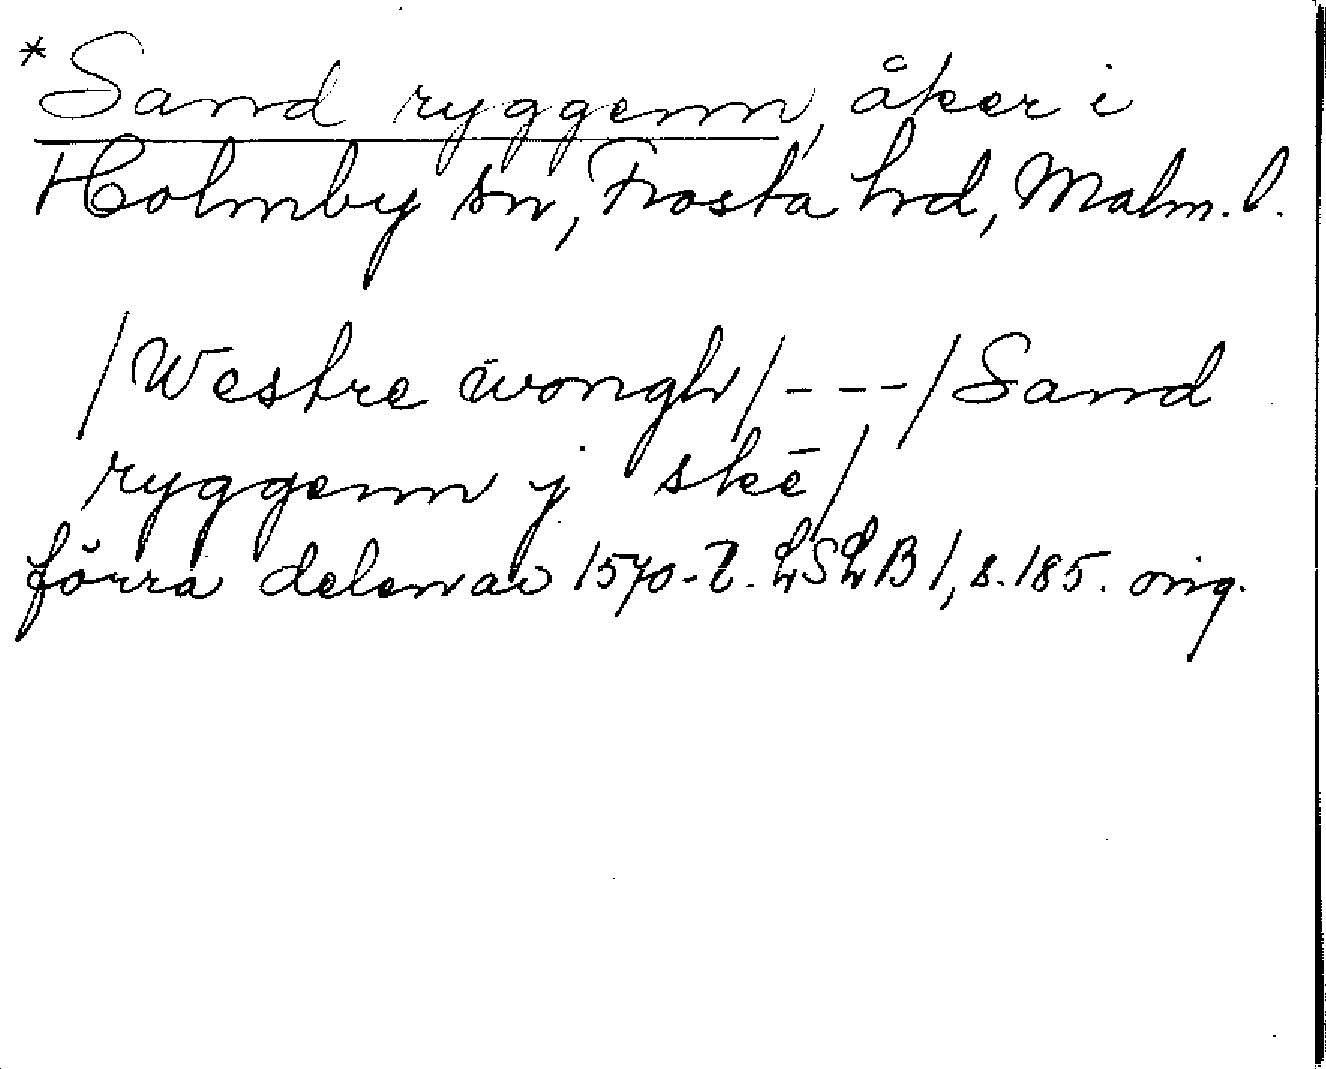 *Sand ryggenn, åker i
Holmby sn, Frosta hd, Malm. l.
/Westre wongh/---/Sand
ryggenn j skē/
förra delen av 1570-t. LSLB 1, s. 185. orig.